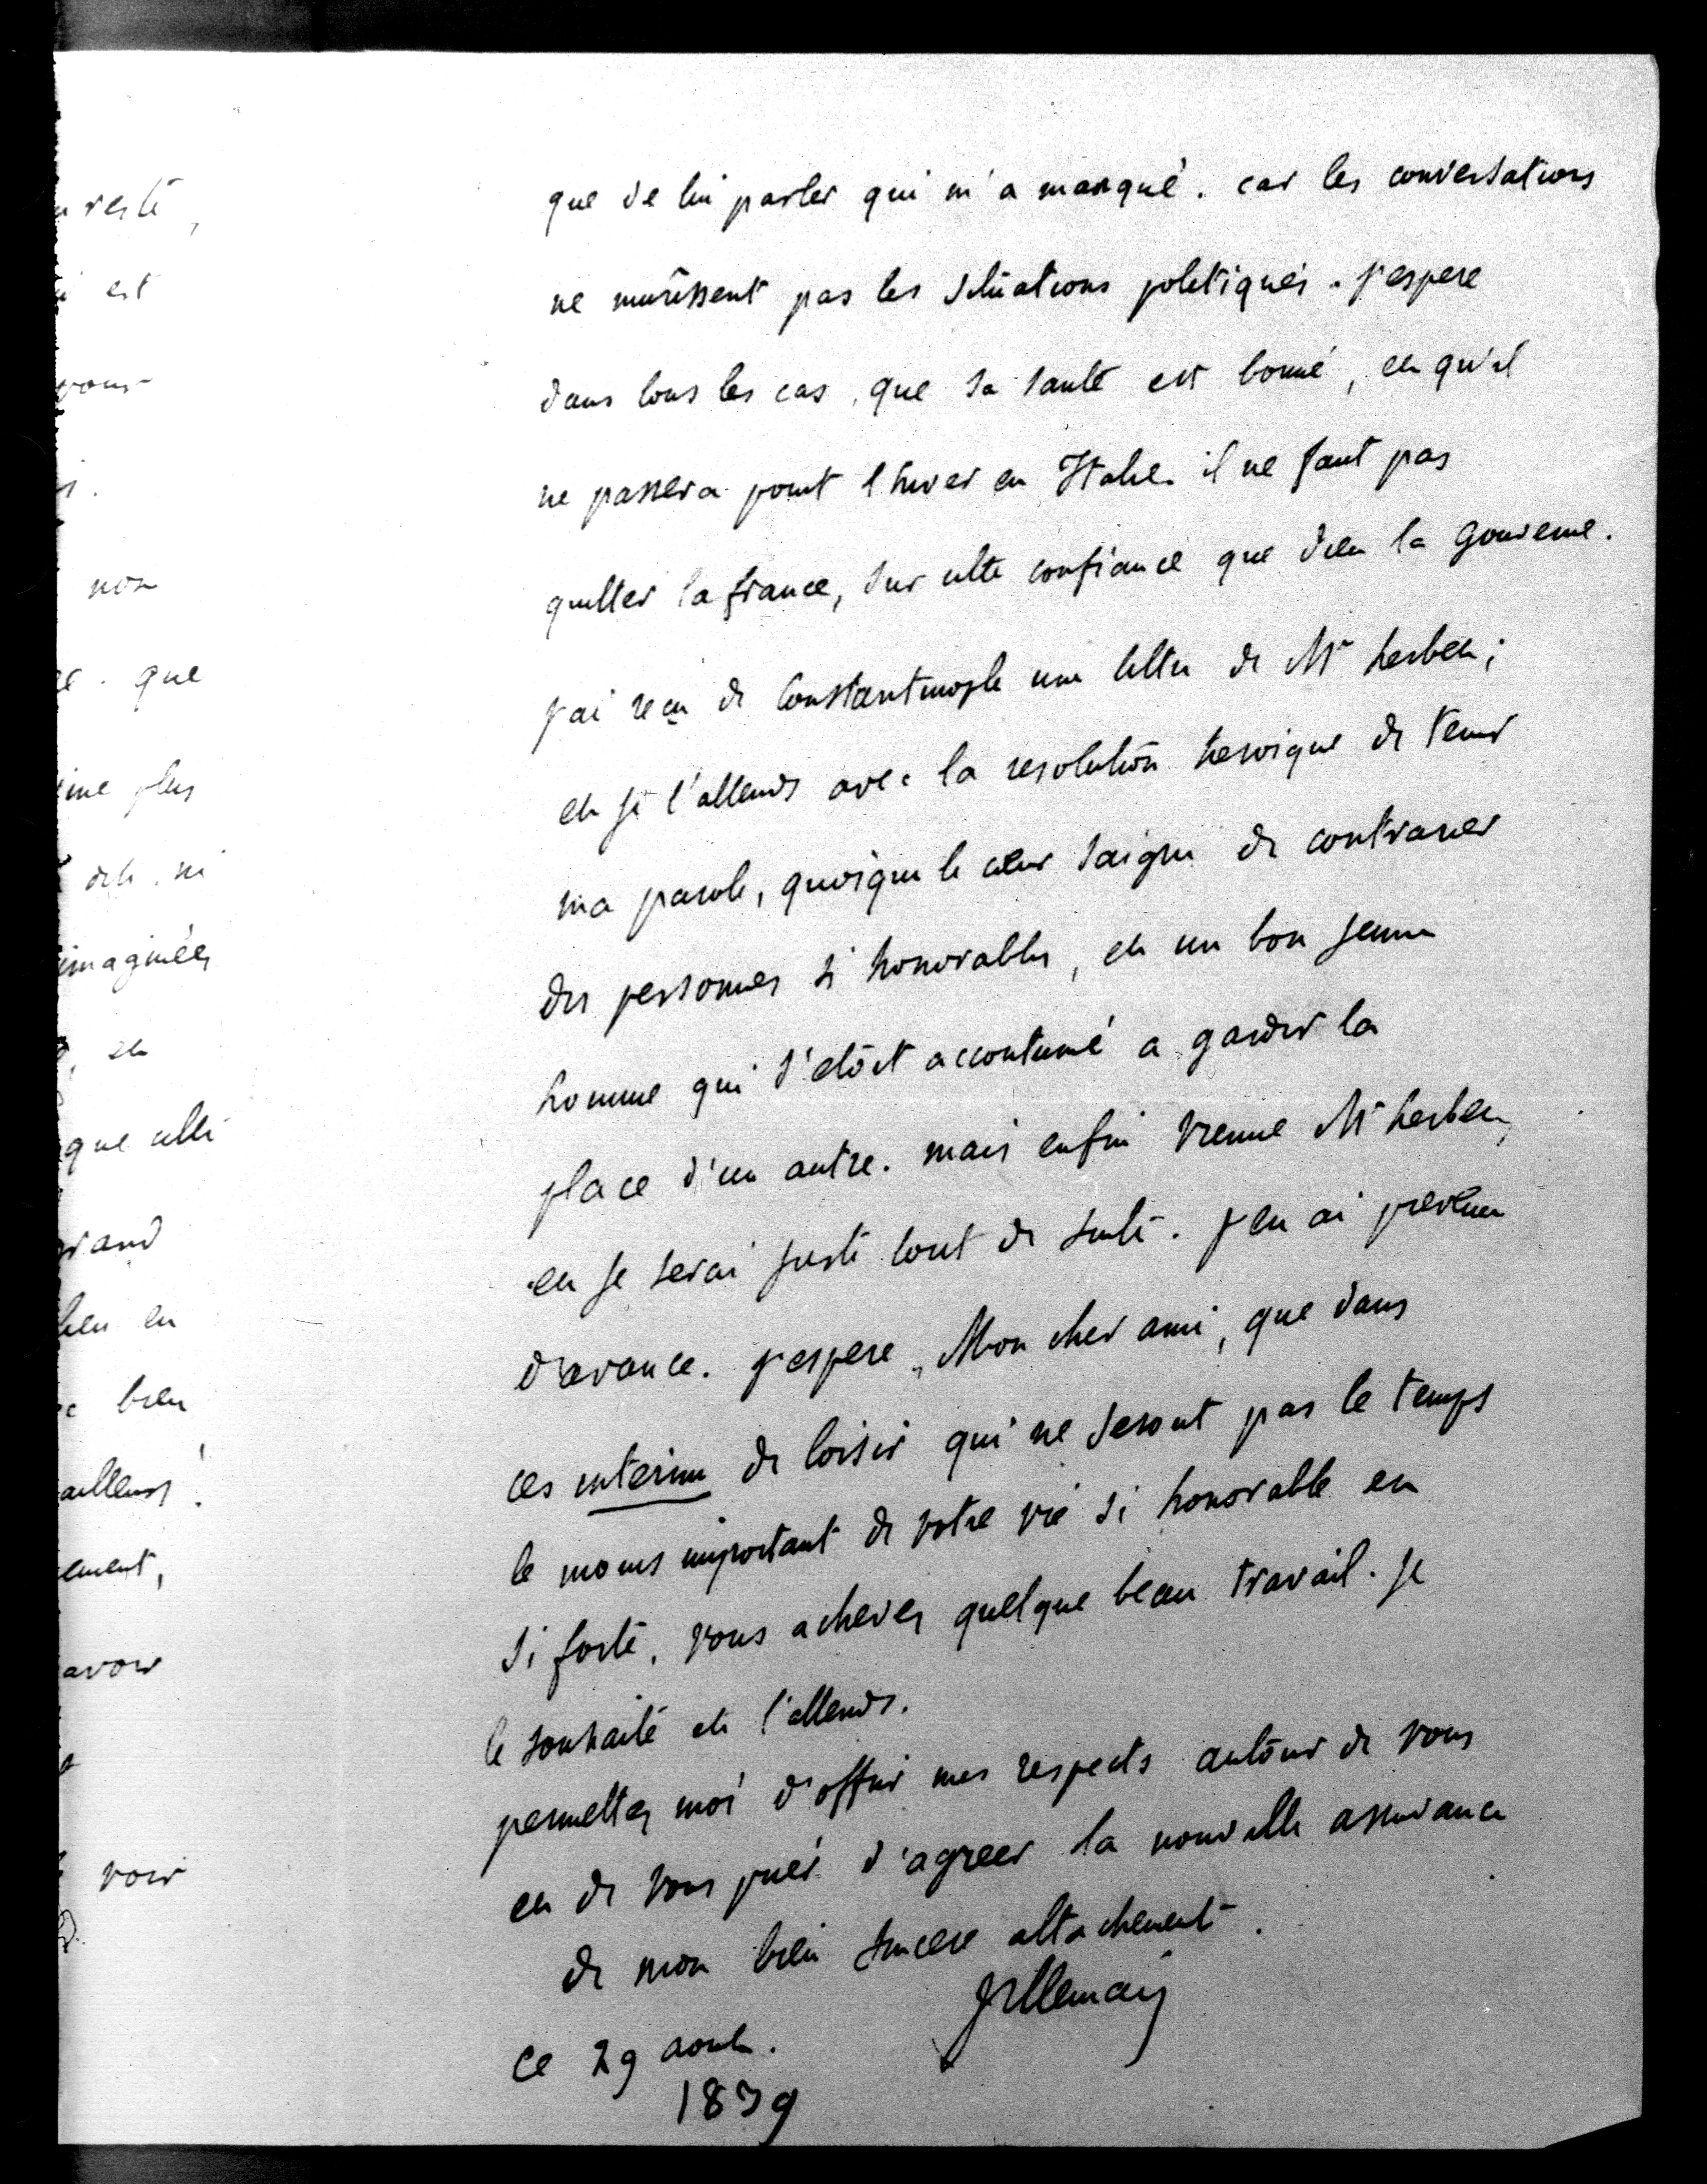 n resté,
i est
vous
s.
non
ce. que
ime plus
dele, ni
imaginées
, et
que celle
grand
bien en
c bien
ailleurs!
ement,
avoir
voir
que de lui parler qui m'a manqué. car les conversations
ne murissent pas les situations politiques. j'espere
dans tous les cas, que sa santé est bonne, et qu'il
ne passera point l'hiver en Italie. il ne faut pas
quitter la france, sur cette confiance que dieu la gouverne.
j'ai reçu de Constantinople une lettre de Mr herbet;
et je l'attends avec la resolution heroique de tenir
ma parole, quoique le cœur saigne de contrarier
des personnes si honorables, et un bon jeune
homme qui s'etoit accoutumé a garder la
place d'un autre. mais enfin vienne Mr herbet,
et je serai juste tout de suite. j'en ai prevenu
d'avance. j'espere, Mon cher ami, que dans
ces interim de loisir qui ne seront pas le temps
le moins important de votre vie si honorable et
si forte, vous achevez quelque beau travail. je
le souhaite et l'attends.
permettez moi d'offrir mes respects autour de vous
et de vous prier d'agreer la nouvelle assurance
de mon bien sincere attachement.
Villemain
ce 29 aout.
1839